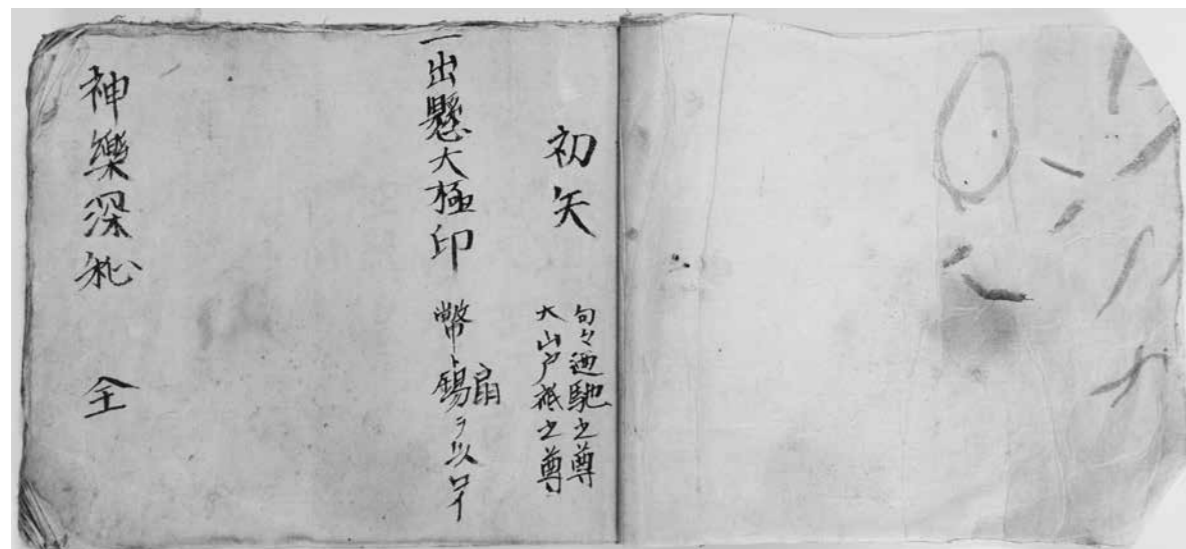 初矢
句々廼馳之尊
大山戸祇之尊
一出懸大極印 幣ト錫ヲ以
扇
神樂深秘 全